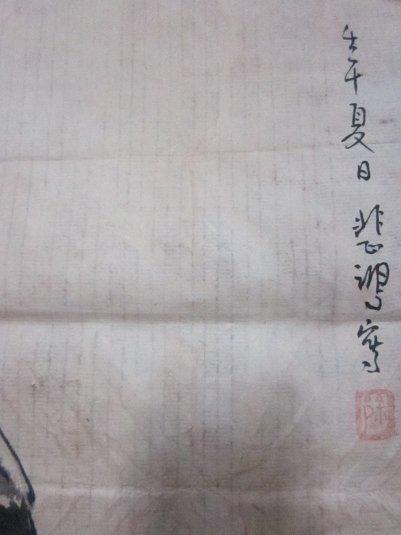 壬午夏日悲鴻寫